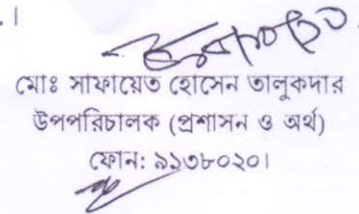 মোঃ সাফায়েত হোসেন তালুকদার
উপপরিচালক (প্রশাসন ও অর্থ)
ফোন: ৯১৩৮০২০।